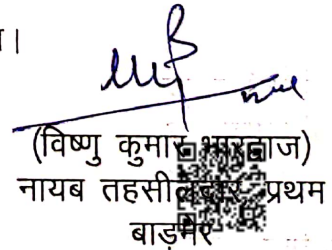 ।
(विष्णु कुमार भारद्वाज)
नायब तहसीलदार प्रथम
बाड़मेर